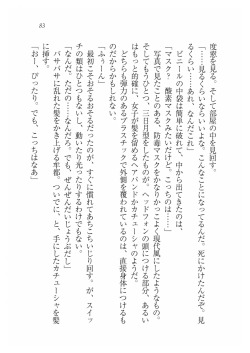 83
度窓を見る。そして部屋の中を見回す。
「……見るくらいならいいよな。こんなことになってるんだ。死にかけたんだぞ。見
るくらい……あれ、なんだこれ」
ビニールの中袋は簡単に破れて、中から出てきたのは、
「マスク……？ 酸素マスクみたいな……だけど、こっちのは……」
写真で見たことのある、防毒マスクをかなりかっこよく現代風にしたようなもの。
そしてもうひとつ、三日月型をしたものが。ヘッドフォンの頭につける部分、あるい
はもっと的確に、女子が髪を留めるヘアバンドかカチューシャのような。
どちらも弾力のあるプラスチックで外側を覆われているのは、直接身体につけるも
のだからかもしれない。
「ふぅん」
最初こそおそるおそるだったのが、すぐに慣れてあちこちいじり回す。が、スイッ
チの類はひとつもないし、動いたり光ったりするわけでもない。
なんだ、ただの……なんだろう。でも、ぜんぜんだいじょうぶだし」
バサバサに乱れた髪をかき上げる幸郁、ついでに、と、手にしたカチューシャを髪
に挿す。
「おー、ぴったり。でも、こっちはなあ」